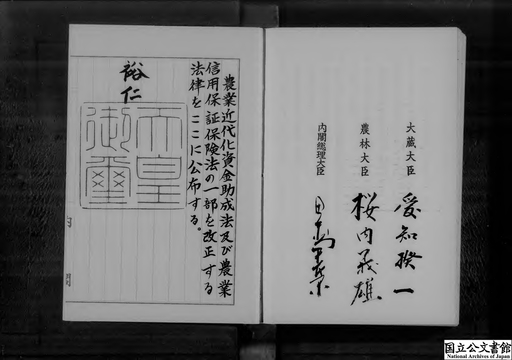 大蔵大臣 愛知揆一
農林大臣 桜内義雄
内閣総理大臣
農業近代化資金助成法及び農業
信用保証保険法の一部を改正する
法律をここに公布する。
裕仁
天皇
御璽
国立公文書館
National Archives of Japan